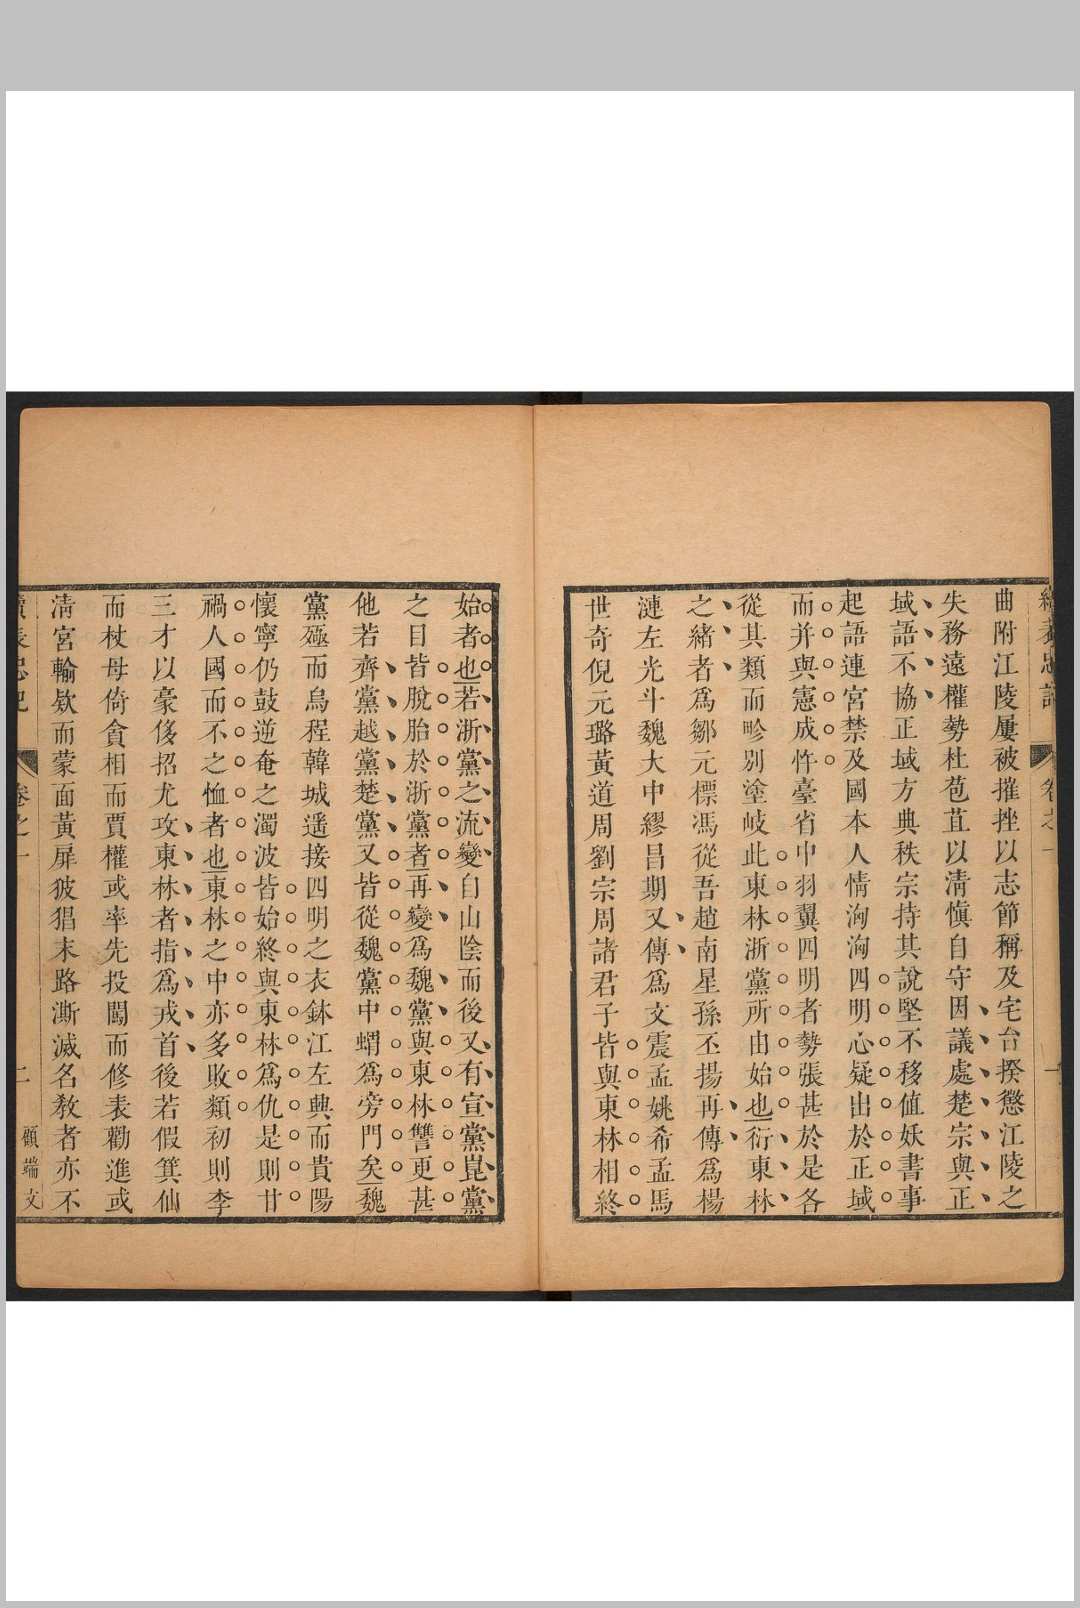 續表忠記
卷之一
曲附江陵屢被摧挫以志節稱及宅台揆懲江陵之
失務遠權勢杜苞苴以清慎自守因議處楚宗與正
域語不協正域方典秩宗持其說堅不移值妖書事
起語連宮禁及國本人情洶洶四明心疑出於正域
而并與憲成忤臺省中羽翼四明者勢張甚於是各
從其類而畛別塗岐此東林浙黨所由始也衍東林
之緒者爲鄒元標馮從吾趙南星孫丕揚再傳爲楊
漣左光斗魏大中繆昌期又傳爲文震孟姚希孟馬
世奇倪元璐黃道周劉宗周諸君子皆與東林相終
始者也若浙黨之流變自山陰而後又有宣黨崑黨
之目皆脫胎於浙黨者再變爲魏黨與東林讐更甚
他若齊黨越黨楚黨又皆從魏黨中蝟爲旁門矣魏
黨殛而烏程韓城遙接四明之衣鉢江左興而貴陽
懷寧仍鼓逆奄之濁波皆始終與東林爲仇是則甘
禍人國而不之恤者也東林之中亦多敗類初則李
三才以豪侈招尤攻東林者指爲戎首後若假箕仙
而杖母倚貪相而賈權或率先投闖而修表勸進或
淸宮輸欵而蒙面黃扉披猖末路澌滅名敎者亦不
續表忠記
卷之一
二
顧端文